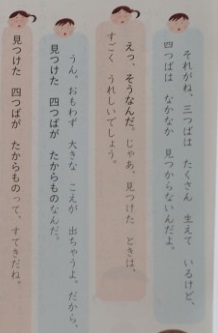 それがね、三つばは たくさん 生えて いるけど、
四つばは なかなか 見つからないんだよ。
えっ、そうなんだ。じゃあ、見つけた ときは、
すごく うれしいでしょう。
うん。おもわず 大きな こえが 出ちゃうよ。だから、
見つけた 四つばが たからものなんだ。
見つけた 四つばが たからものって、すてきだね。